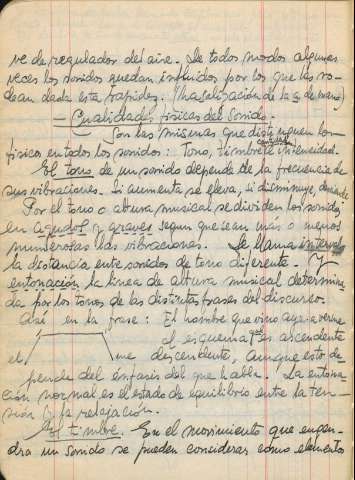 ve de regulador del aire. De todos modos algunas
veces los sonidos quedan influidos por los que les ro-
dean dada esta rapidez. (Nasalización de la a de mano)
- Cualidades físicas del sonido.
Son las mismas que distinguen los
cantidad
físicos en todos los sonidos: Tono, timbre e intensidad.
El tono de un sonido depende de la frecuencia de
sus vibraciones. Si aumenta se eleva, si disminuye, desciende
Por el tono o altura musical se dividen los sonidos
en agudos y graves segun que sean más o menos
numerosas las vibraciones. Se llama intervalo
la distancia entre sonidos de tono diferente. Y
entonación la linea de altura musical determina
da por los tonos de las distintas frases del discurso.
Asi en la frase: El hombre que vino ayer a verme
el esquema es ascendente
el me descendente, aunque esto de-
pende del énfasis del que habla. La entona-
ción normal es el estado de equilibrio entre la ten-
sión y la relajación.
El timbre. En el movimiento que engen-
dra un sonido se pueden considerar como elementos